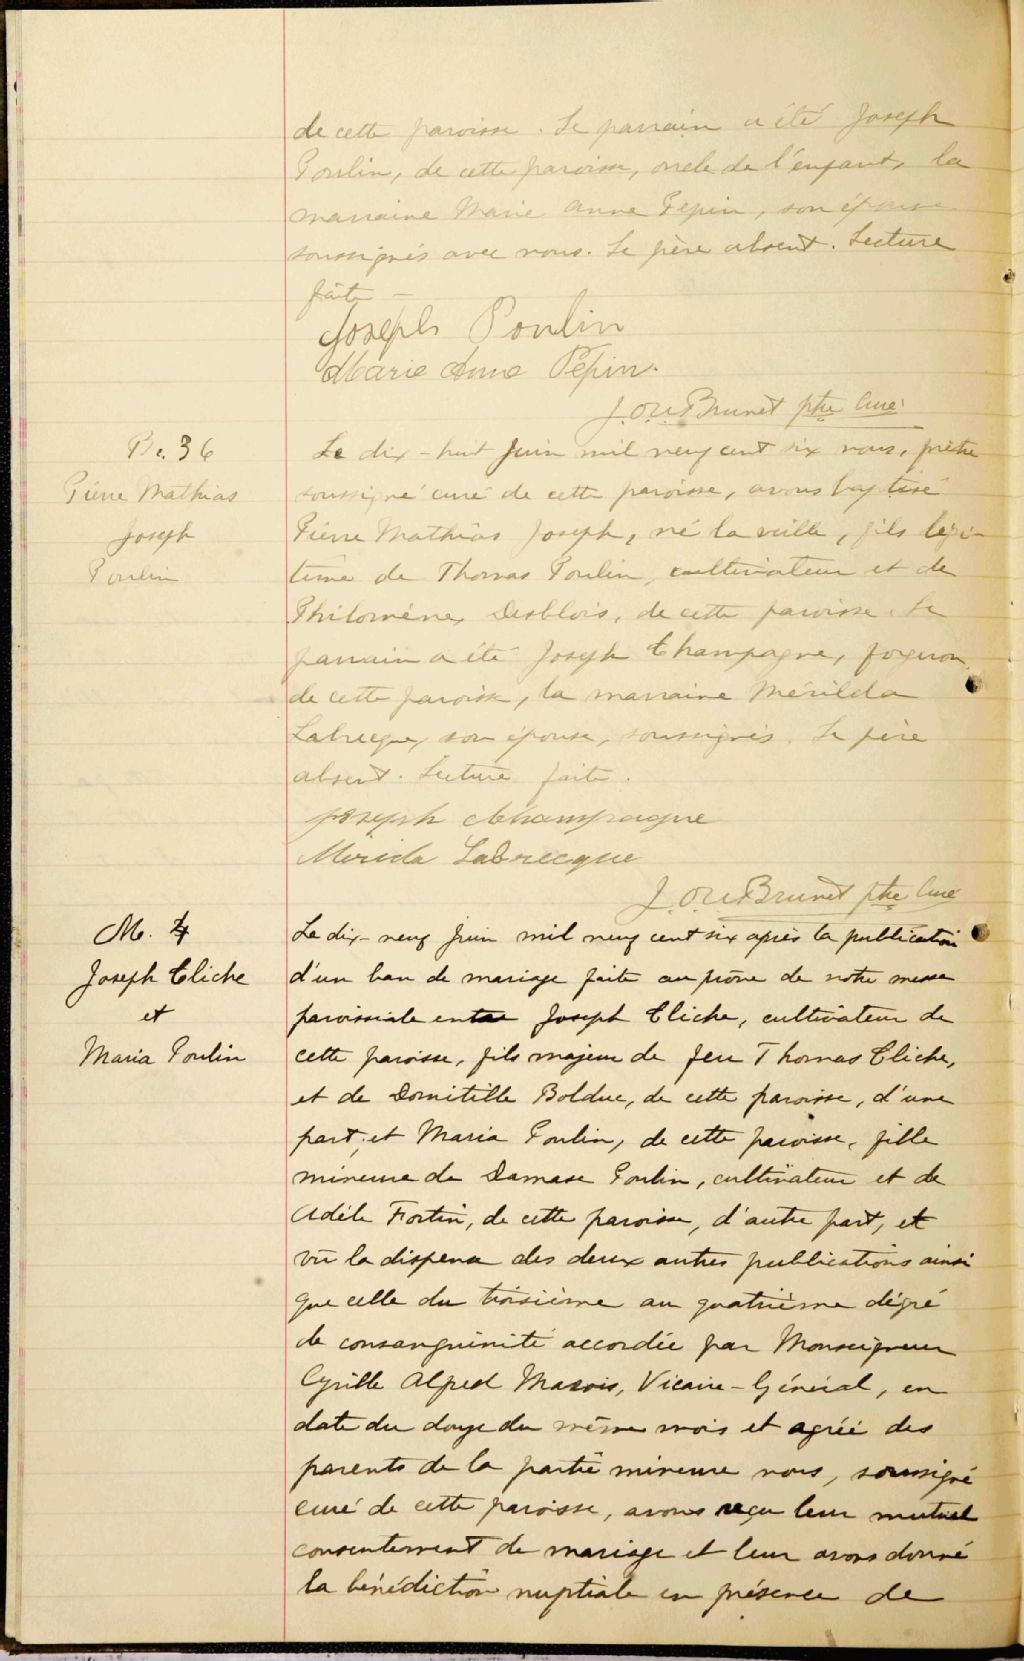 de cette paroisse. Le parrain a été Joseph
Poulin, de cette paroisse, oncle de l'enfant, la
marraine Marie Anne Pepin, son épouse
soussignés avec nous. Le père absent. Lecture
faite —
Joseph Poulin
Marie Anne Pépin.
J. Brunet ptre Curé
B. 36
Pierre Mathias
Joseph
Poulin
Le dix-huit Juin mil neuf cent six nous, prêtre
soussigné curé de cette paroisse, avons baptisé
Pierre Mathias Joseph, né la veille, fils légi-
time de Thomas Poulin, cultivateur et de
Philomène Desblois, de cette paroisse. Le
parrain a été Joseph Champagne, forgeron
de cette paroisse, la marraine Mérilda
Labrecque, son épouse, soussignés. Le père
absent. Lecture faite.
Joseph Champagne
Merida Labrecque
J. Brunet ptre Curé
M. 4
Joseph Cliche
et
Maria Poulin
Le dix-neuf Juin mil neuf cent six après la publication
d'un ban de mariage faite au prône de notre messe
paroissiale entre Joseph Cliche, cultivateur de
cette paroisse, fils majeur de feu Thomas Cliche,
et de Domitille Bolduc, de cette paroisse, d'une
part; et Maria Poulin, de cette paroisse, fille
mineure de Damase Poulin, cultivateur et de
Adèle Fortin, de cette paroisse, d'autre part, et
vu la dispense des deux autres publications ainsi
que celle du troisième au quatrième dégré
de consanguinité accordée par Monseigneur
Cyrille Alfred Marois, Vicaire-Général, en
date du douze du même mois et agréé des
parents de la partie mineure nous, soussigné
curé de cette paroisse, avons reçu leur mutuel
consentement de mariage et leur avons donné
la bénédiction nuptiale en présence de